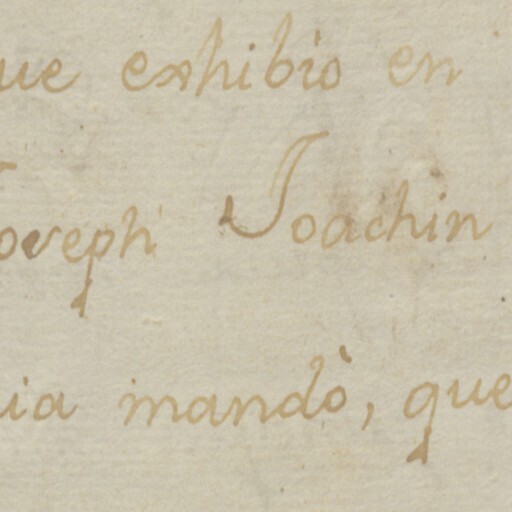 ue exhibio en
oseph Joachin
ia mandò, que